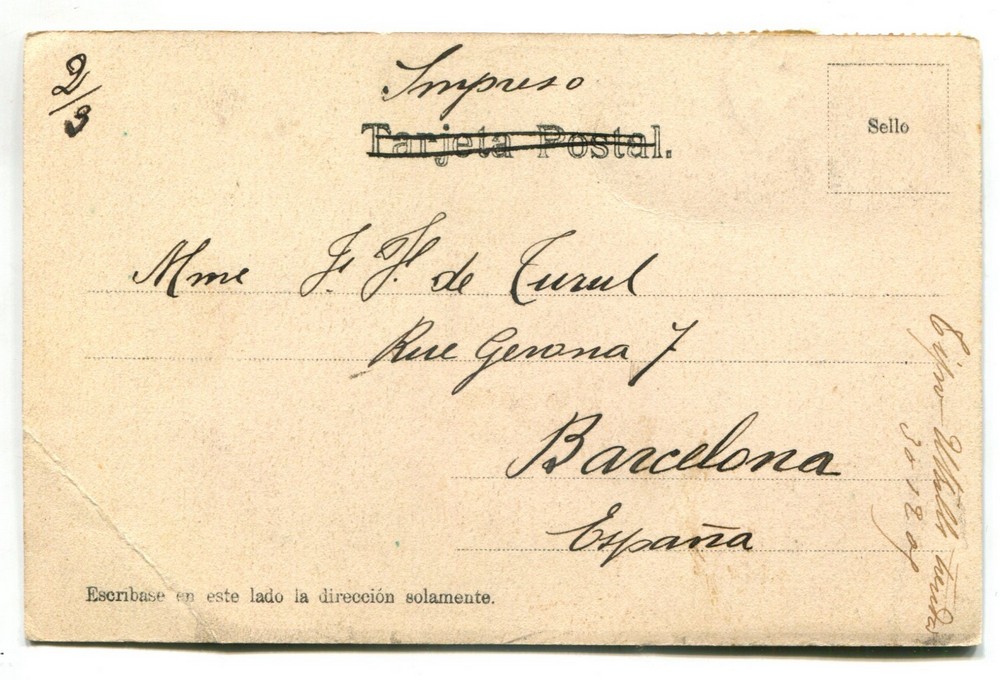 2/3
Impreso
Tarjeta Postal.
Sello
Mme F. F. de Turul
Rue Gerona 7
Barcelona
España
Escríbase en este lado la dirección solamente.